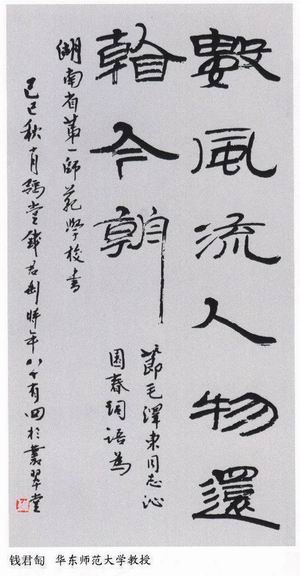 數風流人物還
看今朝
節毛澤東同志沁
園春詞語為
湖南省第一師範學校書
己巳秋十月豫堂錢君匋時年八十有四於叢翠堂
钱君匋 华东师范大学教授